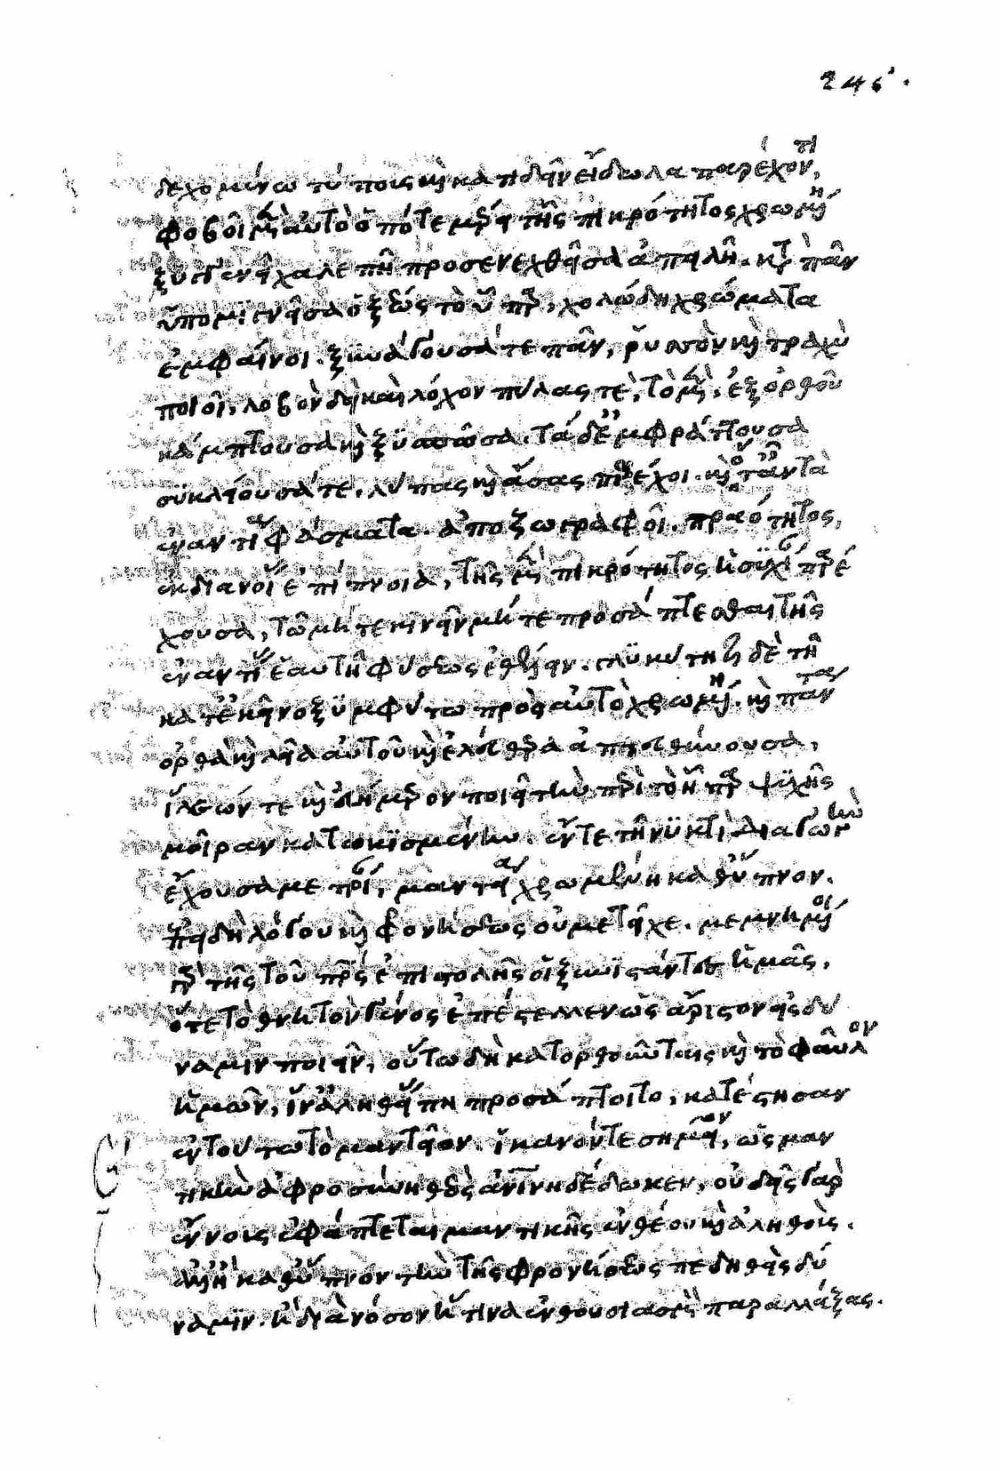 246.
δεχομένω τύπους καὶ κατιδεῖν εἴδωλα παρέχοντι,
φοβοῖ μὲν αὐτὸ ὁπότε μέρει τῆς πικρότητος χρωμένη
ξυγγενεῖ χαλεπὴ προσενεχθεῖσα ἀπειλῇ. κατὰ πᾶν
ὑπομιγνῦσα ὀξέως τὸ ἧπαρ, χολώδη χρώματα
ἐμφαίνοι. ξυνάγουσά τε πᾶν, ῥυσὸν καὶ τραχὺ
ποιοῖ, λοβὸν δὴ καὶ δόχον πύλας τε, τὸ μὲν, ἐξ ὀρθοῦ
κάμπτουσα καὶ ξυσπῶσα. τὰ δὲ ἐμφράττουσα
συγκλείουσά τε, λύπας καὶ ἄσας παρέχοι. καὶ ὅταν τὰ
ἐναντία φάσματα ἀποζωγραφοῖ, πραότητος,
ἐκ διανοίας ἐπίπνοια, τῆς μὲν πικρότητος ἡσυχίαν παρέ
χουσα, τῷ μήτε κινεῖν μήτε προσάπτεσθαι τῆς
ἐναντίας ἑαυτῇ φύσεως ἐθέλειν. γλυκύτητι δὲ τῇ
κατ' ἐκεῖνο ξυμφύτω πρὸς αὐτὸ χρωμένη. καὶ πάντα
ὀρθὰ καὶ λεῖα αὐτοῦ καὶ ἐλεύθερα ἀπευθύνουσα,
ἵλεών τε καὶ εὐήμερον ποιεῖ τὴν περὶ τὸ ἧπαρ ψυχῆς
μοῖραν κατωκισμένην. ἔν τε τῇ νυκτὶ διαγωγὴν
ἔχουσα μετρίαν, μαντείᾳ χρωμένην καθ' ὕπνον.
ἐπειδὴ λόγου καὶ φρονήσεως οὐ μετεῖχε. μεμνημένοι
γὰρ τῆς τοῦ πατρὸς ἐπιστολῆς οἱ ξυνιστάντες ἡμᾶς,
ὅτε τὸ θνητὸν γένος ἐπέστελλεν ὡς ἄριστον εἰς δύ
ναμιν ποιεῖν, οὕτω δὴ κατορθοῦντες καὶ τὸ φαῦλον
ἡμῶν, ἵνα ἀληθείας πη προσάπτοιτο, κατέστησαν
ἐν τούτω τὸ μαντεῖον. ἱκανὸν δὲ σημεῖον, ὡς μαν
τικὴν ἀφροσύνῃ θεὸς ἀνθρωπίνῃ δέδωκεν, οὐδεὶς γὰρ
ἔννους ἐφάπτεται μαντικῆς ἐνθέου καὶ ἀληθοῦς.
ἀλλ' ἢ καθ' ὕπνον τὴν τῆς φρονήσεως πεδηθεὶς δύ
ναμιν. ἢ διὰ νόσον ἤ τινα ἐνθουσιασμὸν παραλλάξας.